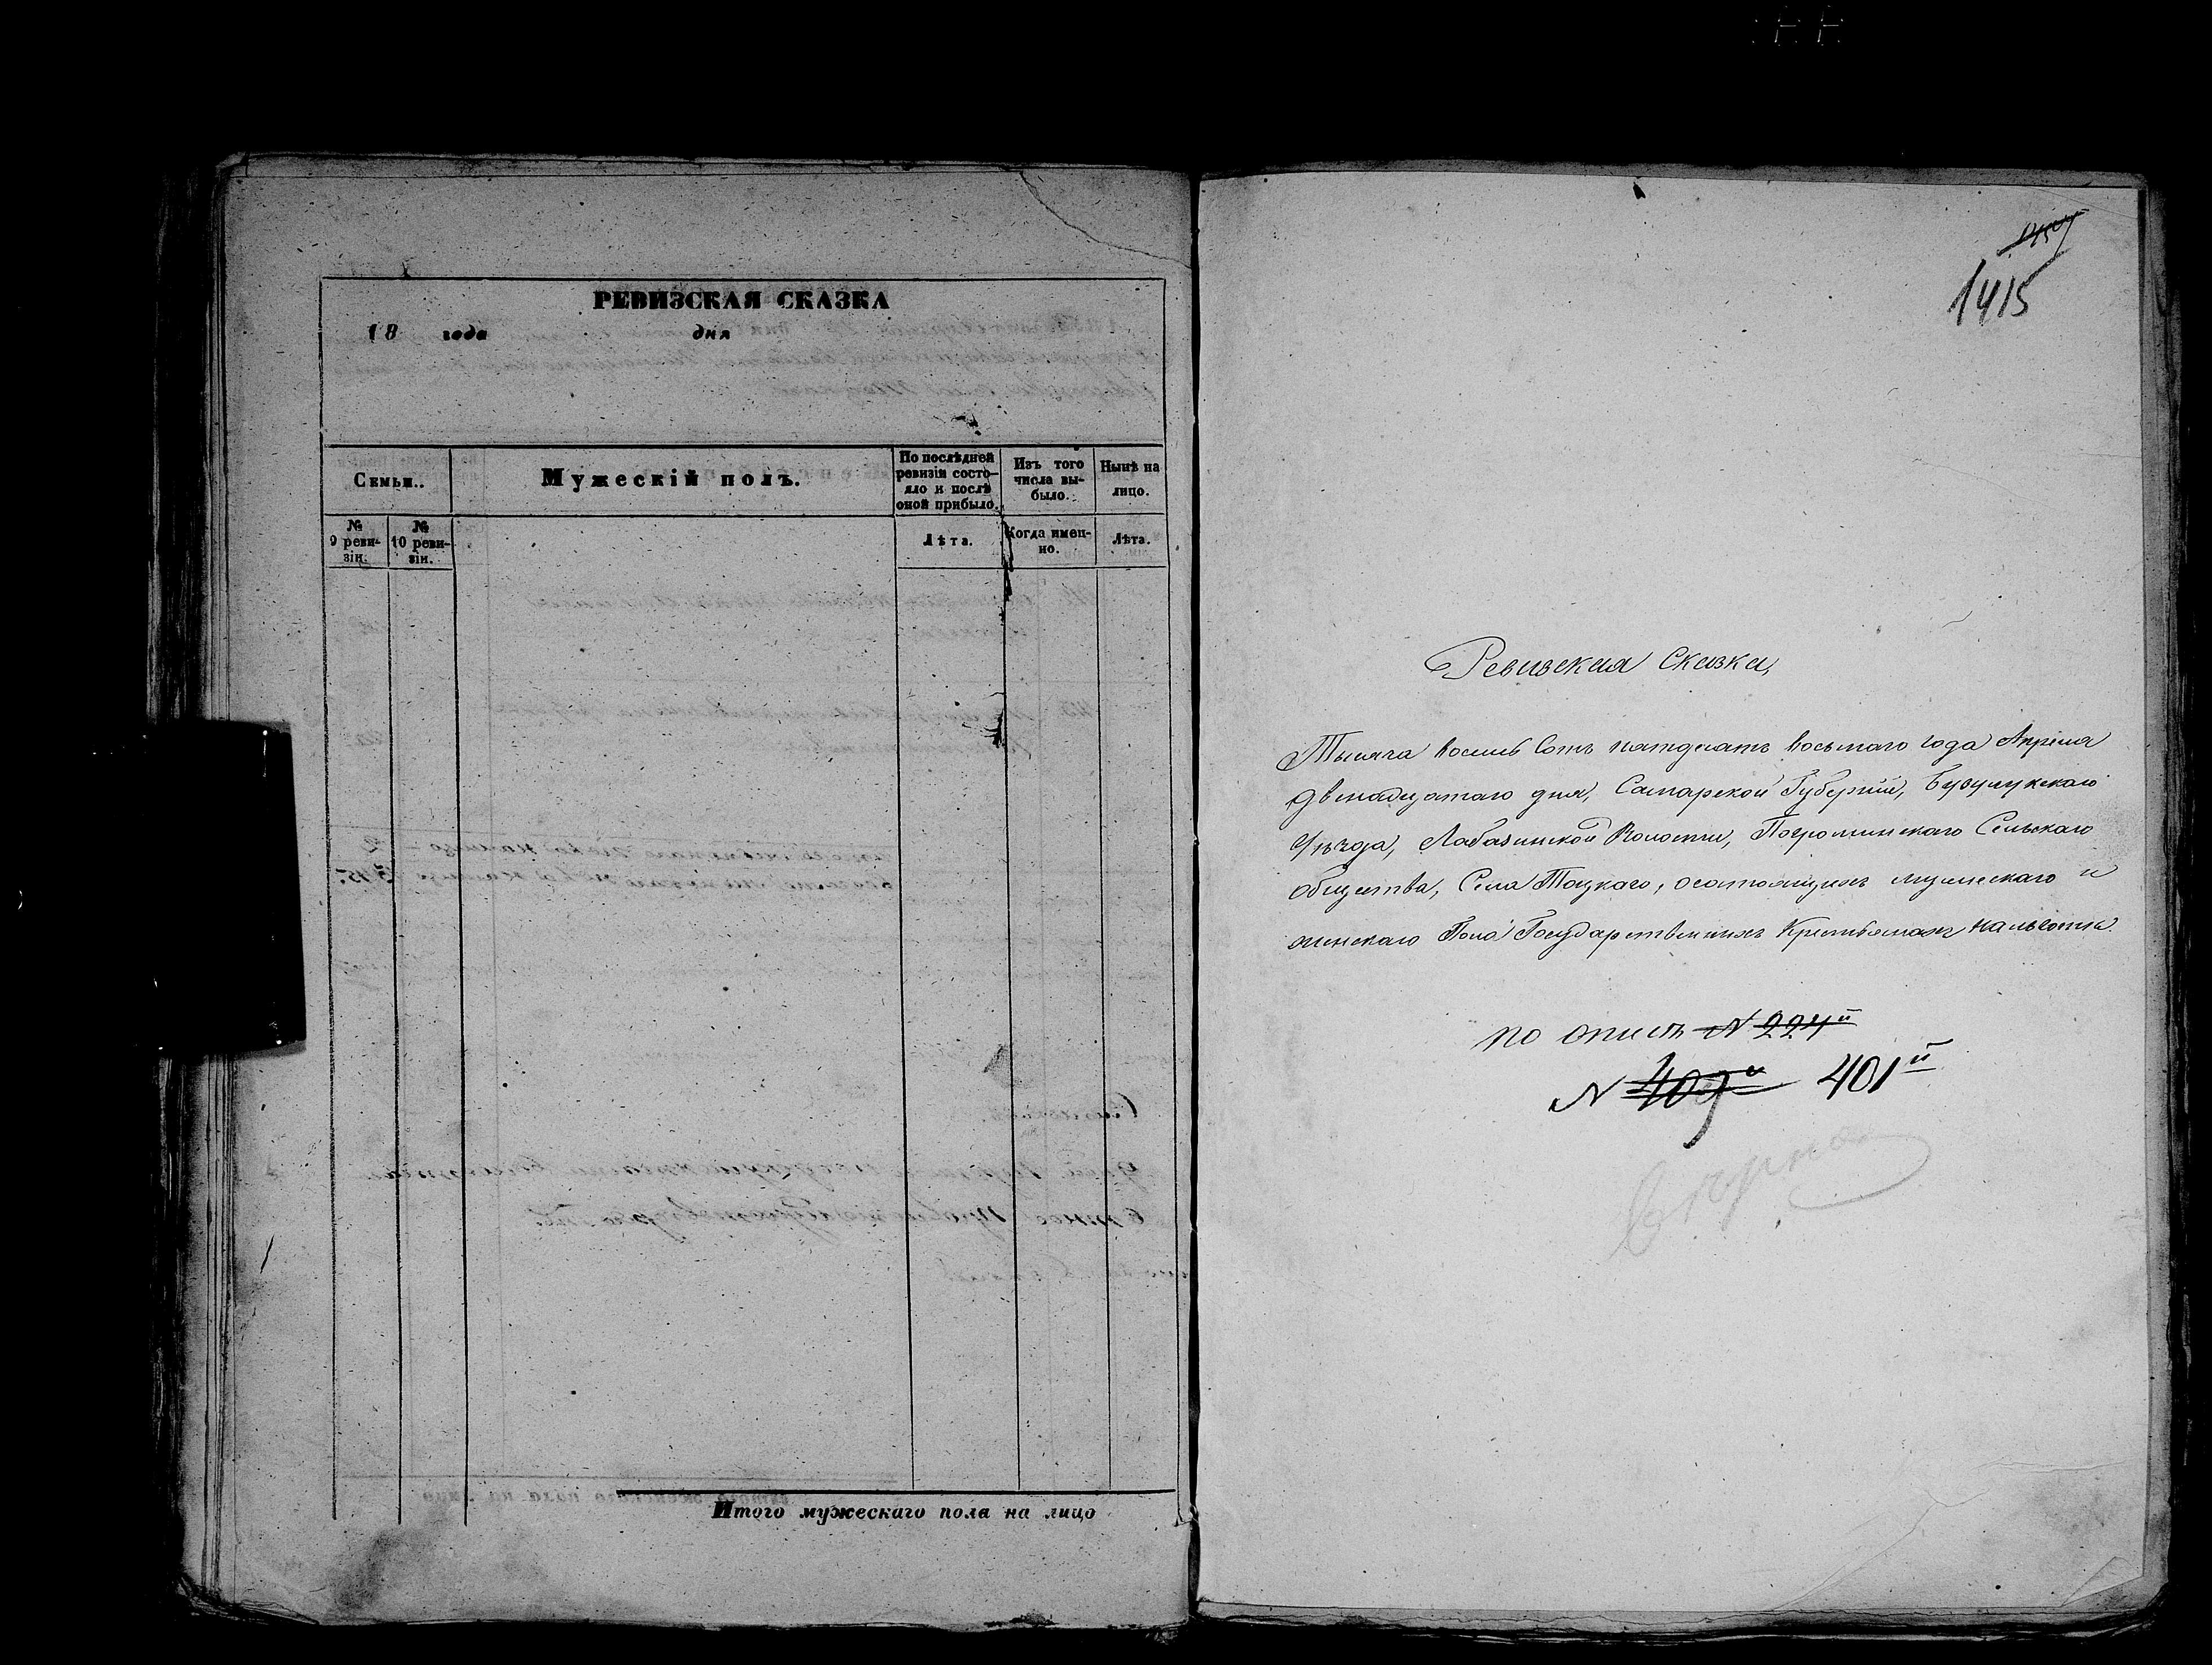 РЕВИЗСКАЯ СКАЗКА
18 года дня
Семьи.
Мужескій полъ.
По послѣдней ревизіи состо-
яло и послѣ оной прибыло.
Изъ того числа вы-
было.
Нынѣ на лицо.
№ 9 реви-
зіи.
№ 10 реви-
зіи.
Лѣта.
Когда имен-
но.
Лѣта.
Итого мужескаго пола на лицо
1415
Ревизская Сказка,
Тысяча восемь Сотъ пятдесятъ восьмаго года Апрѣля
двенадцатаго дня, Самарской Губерніи, Бузулукскаго
Уѣзда, Лабазинской Волости, Погроминскаго Сельскаго
общества, Села Тоцкаго, о состоящихъ мужескаго и
женскаго Пола Государственныхъ Крестьянахъ
по описѣ N 224й
N 409й 401й